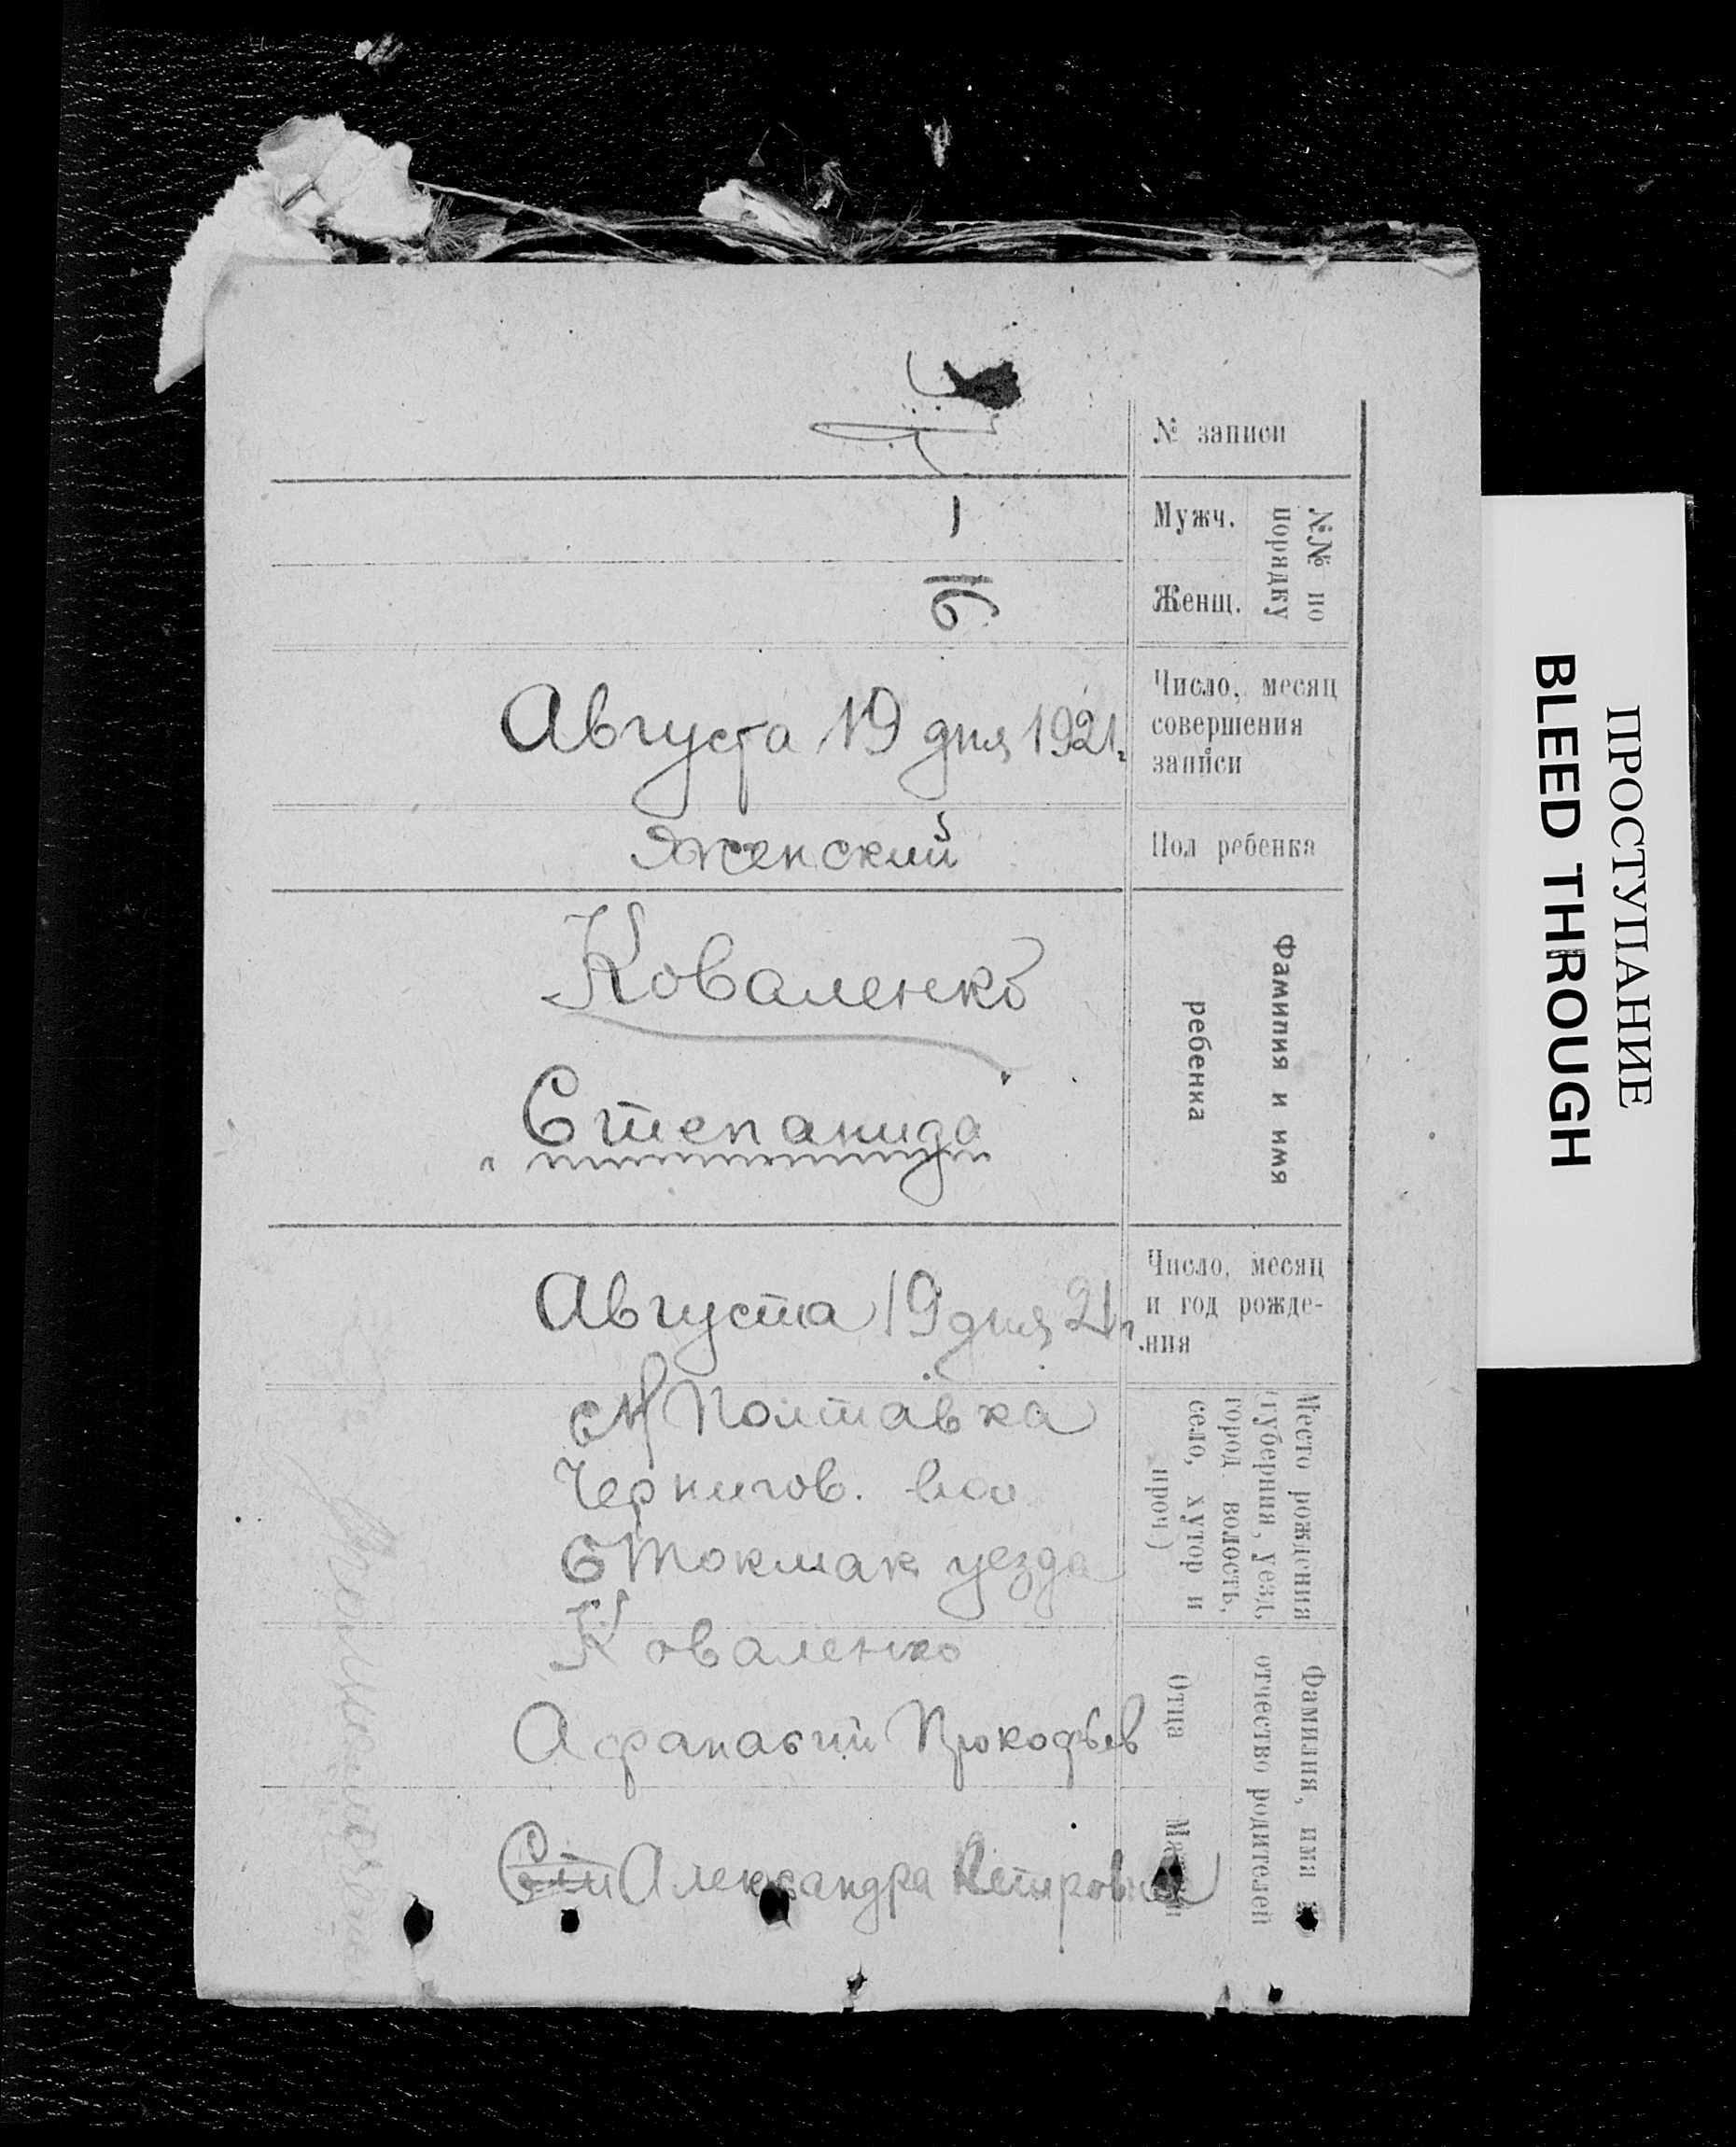 № записи
№№ по
порядку
Мужч.
Женщ.
16
Число, месяц
совершения
записи
Августа 19 дня 1921г.
Пол ребенка
Женский
Фамилия и имя
ребенка
Коваленко
Степанида
Число, месяц
и год рожде-
ния
Августа 19 дня 21г.
Место рождения
(губерния, уезд,
город волость,
село, хутор и
проч)
Полтавка
Чернигов. вол
Б Токмак уезда
Фамилия, имя
отчество родителей
Отца
Коваленко
Афанасий Прокофьев
Матери
Александра Петровна
ПРОСТУПАНИЕ
BLEED THROUGH